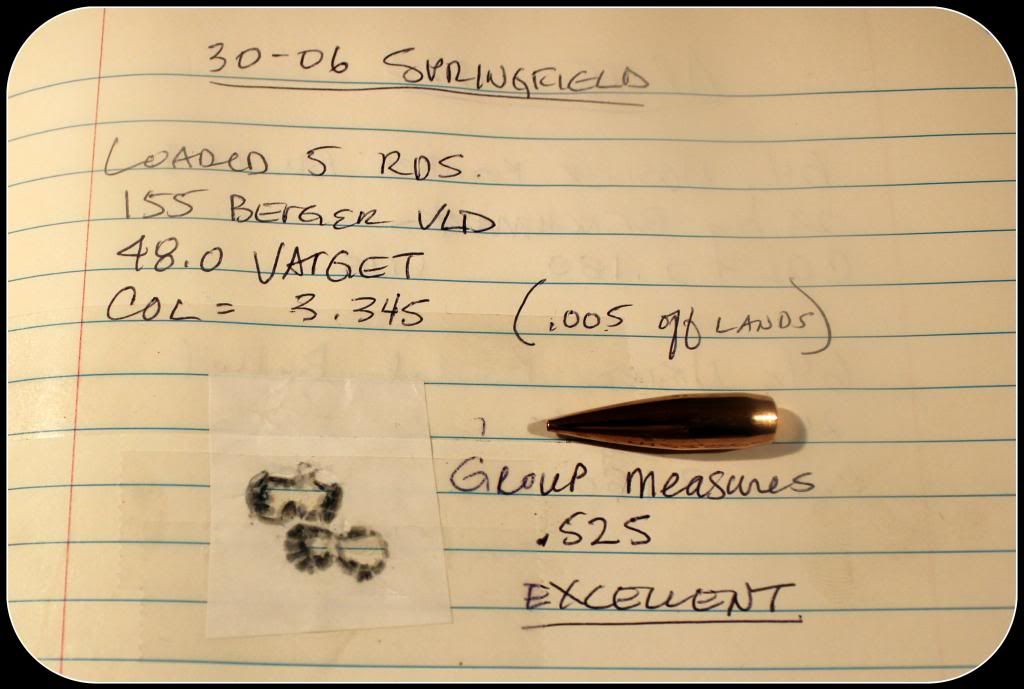 30-06 SPRINGFIELD
LOADED 5 RDS.
155 BERGER VLD
48.0 VATGET
COL = 3.345 (.005 off LANDS)
GROUP measures
.525
EXCELLENT